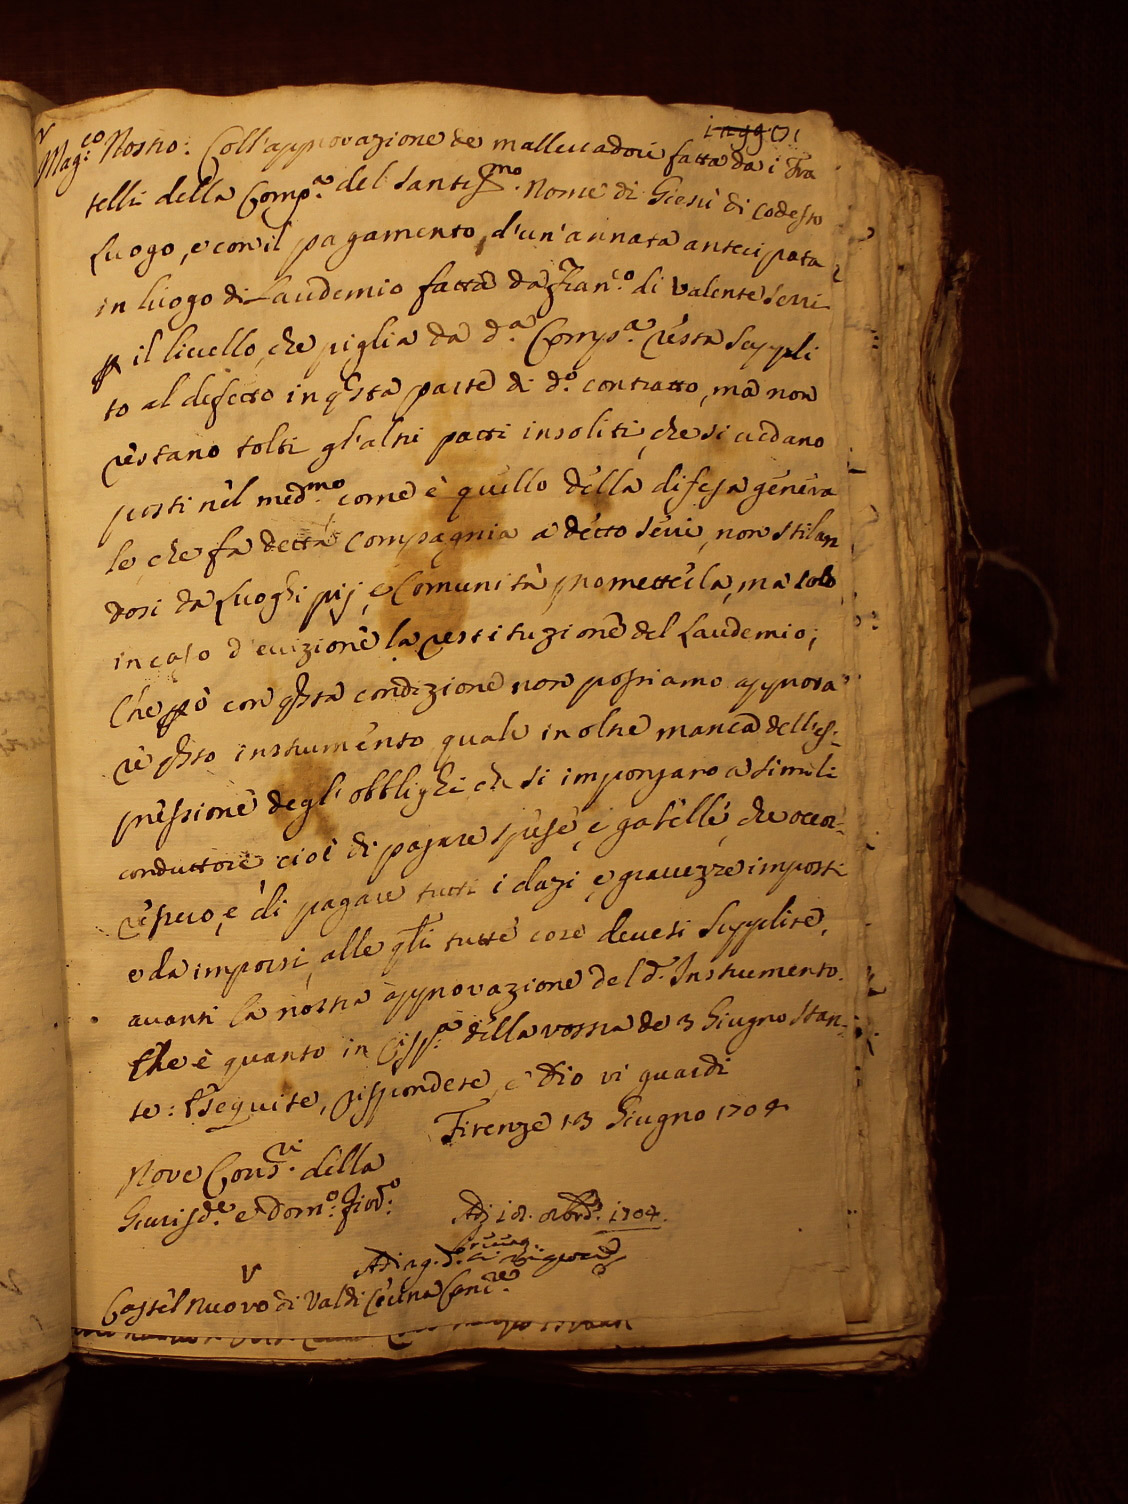 Mag.co Nostro: Coll'approvazione de mallevadori fatta da i Fra
telli della Comp.a del Santiss.mo Nome di Giesù di codesto
Luogo, e con il pagamento d'un'annata antecipata
in luogo di Laudemio fatta da Fran.co di Valente Serri
p il livello, che piglia da d.a Comp.a resta suppli
to al defecto in q.sta parte di d.o contratto, ma non
restano tolti gl'altri patti insoliti, che si uedano
posti nel med.mo come è quello della difesa genera
le, che fa detta Compagnia a detto Serri, non stilan
dosi da Luoghi pij, e Comunità prometterla, ma solo
in caso d'euizione la restituzione del Laudemio;
Che però con q.sta condizione non possiamo approua
re q.sto instrumento quale in oltre manca dell'es-
pressione degl'obblighi che si impongano a simili
conduttori cioè di pagare spese, e gabelle, che occor-
ressero, e di pagare tutti i dazi e grauezze imposti
e da imporsi, alle q.li tutte cose deuesi supplire,
auanti la nostra approvazione del d.o Instrumento.
Che è quanto in risp.a della vostra de 3 Giugno stan-
te: Eseguite, rispondete, e Dio vi guardi
Firenze 13 Giugno 1704
Nove Cons.ri della
Giurisd.e e Dom.o Fior.o
Adj 18. 8bre 1704.
Castel nuovo di Val di Cecina Canc.re